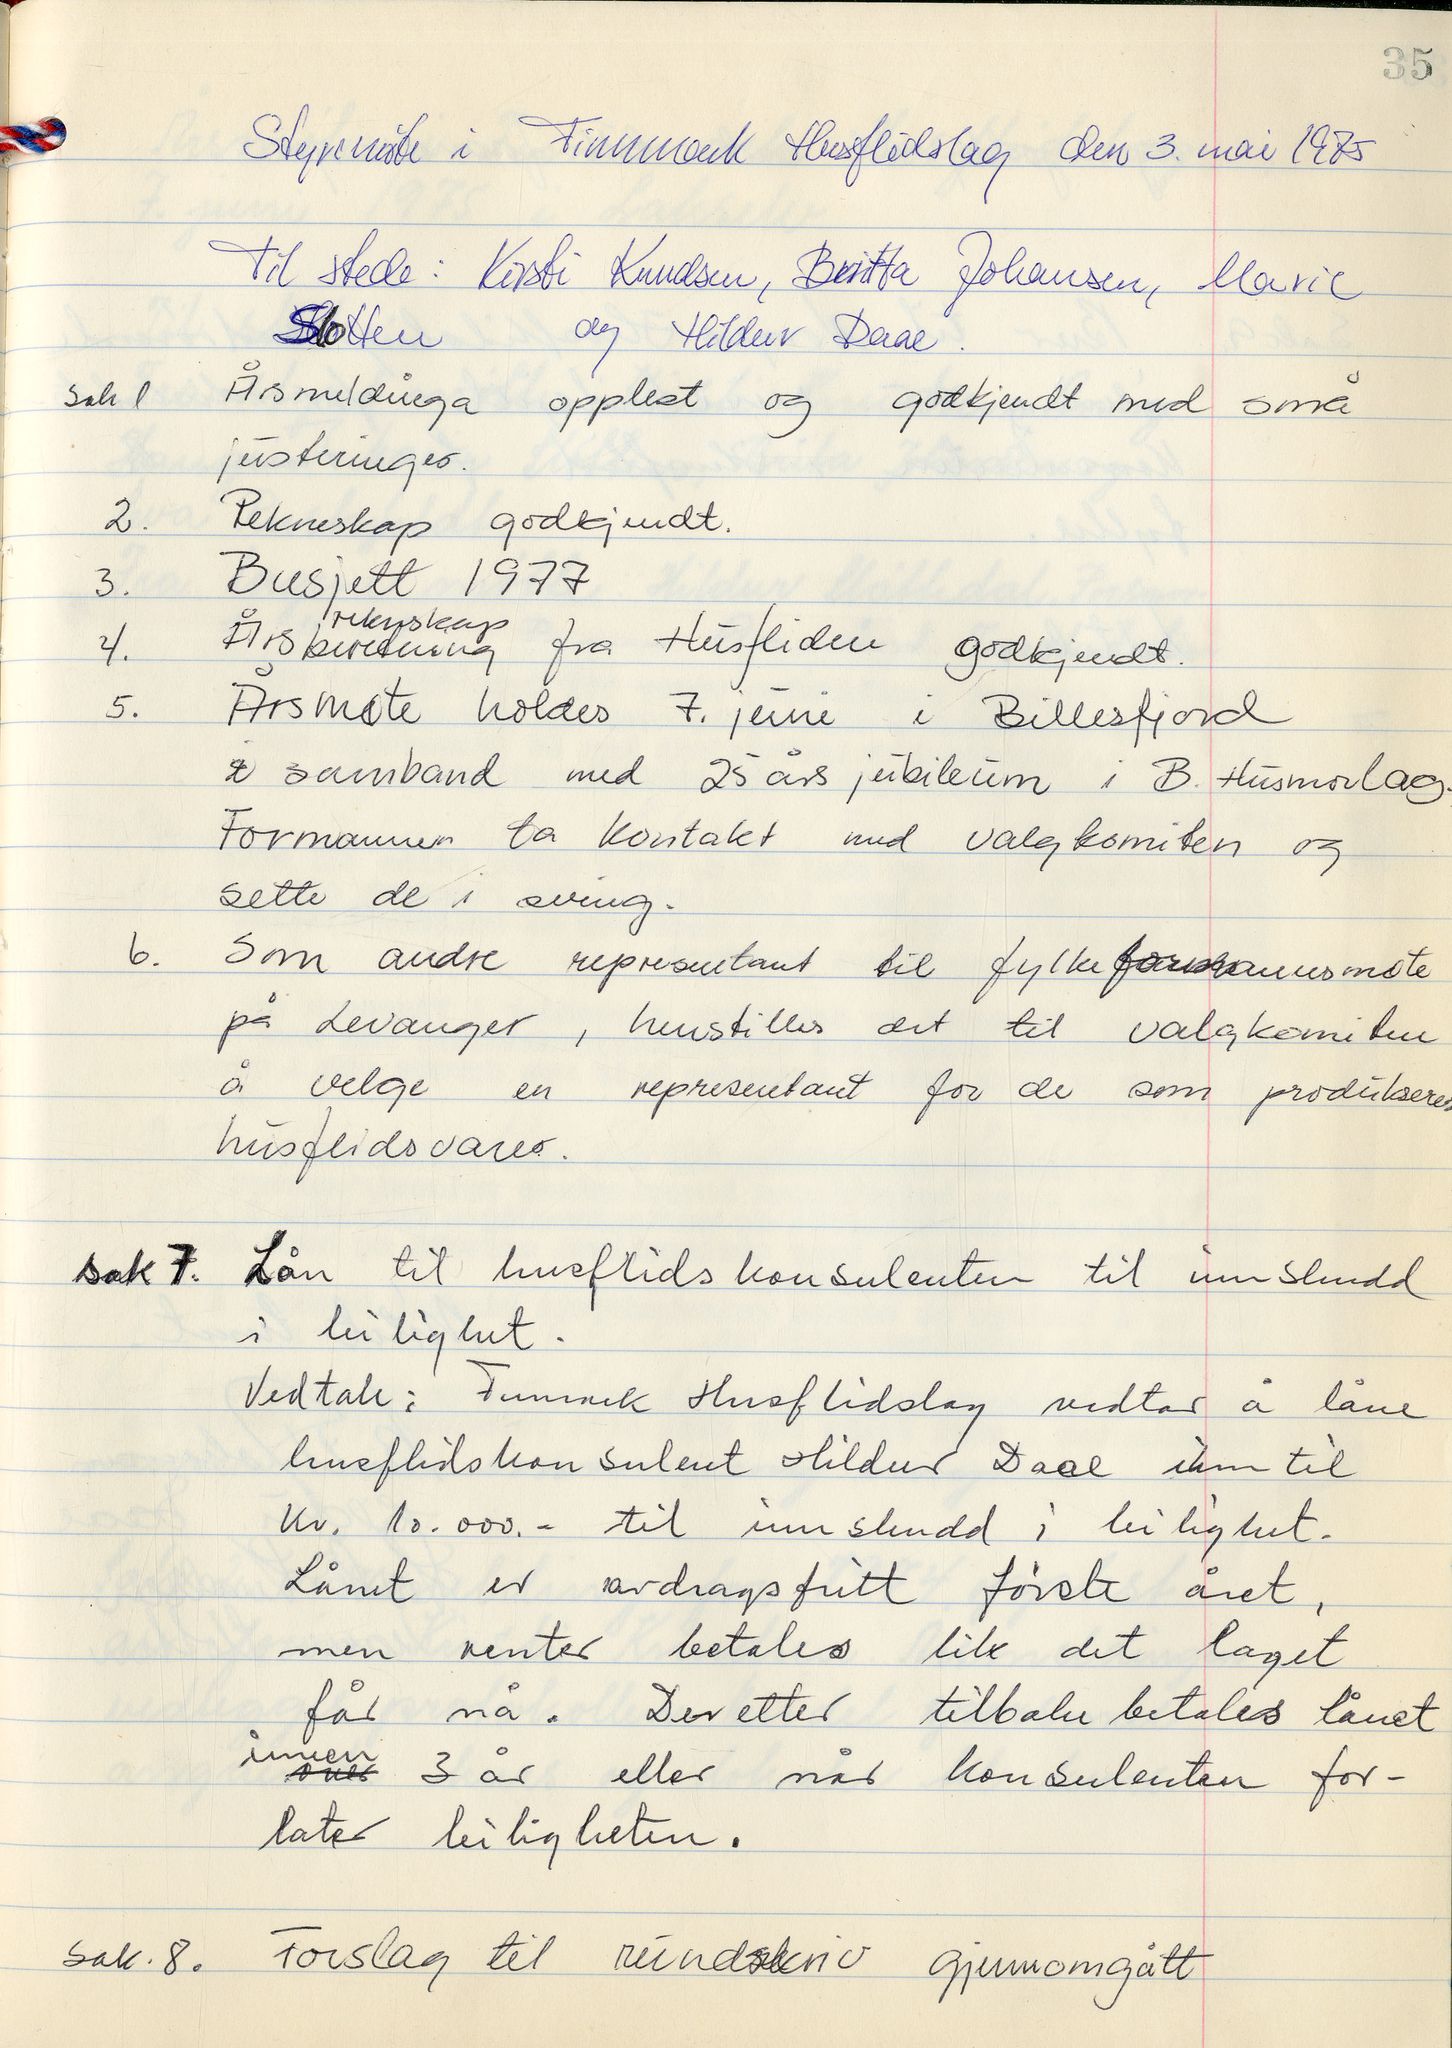 35
Styremöte i Finnmark Husflidslag den 3. mai 1975
Til stede: Kirsti Knudsen, Britta Johansen, Marie
Slotten og Hildur Daae.
Sak 1 Årsmeldinga opplest og godkjendt med små
justeringer.
2. Rekneskap godkjendt.
3. Busjett 1977
rekneskap
4. Årsberetning fra Husfliden godkjendt.
5. Årsmøte holdes 7. juni i Billesfjord
i samband med 25 års jubileum i B. Husmorlag.
Formannen ta kontakt med valgkomiten og
sette de i sving.
6. Som andre representant til fylkeformannsmøte
på Levanger, henstilles det til valgkomiten
å velge en representant for de som produserer
husflidsvarer.
sak 7. Lån til husflidskonsulenten til innskudd
i leilighet.
Vedtak: Finnmark Husflidslag vedtar å låne
husflidskonsulent Hildur Daae inntil
kr. 10.000.- til innskudd i leilighet.
Lånet er avdragsfritt første året,
men renter betales lik det laget
får nå. Deretter tilbake betales lånet
innen
over 3 år eller når konsulenten for-
later leiligheten.
sak. 8. Forslag til rundskriv gjennomgått